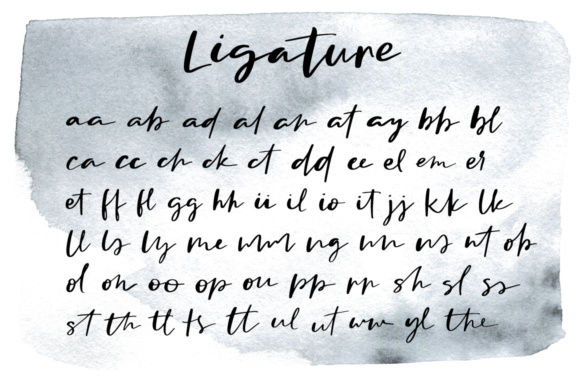 Ligature
aa ab ad al an at ay bb bl
ca cc ch ck ct dd ee el em er
et ff fl gg hh ii il io it jj kk lk
ll ls ly me mm ng nn ns nt ob
ol on oo op ou pp rr sh sl ss
st th tl ts tt ul ut ww yl the